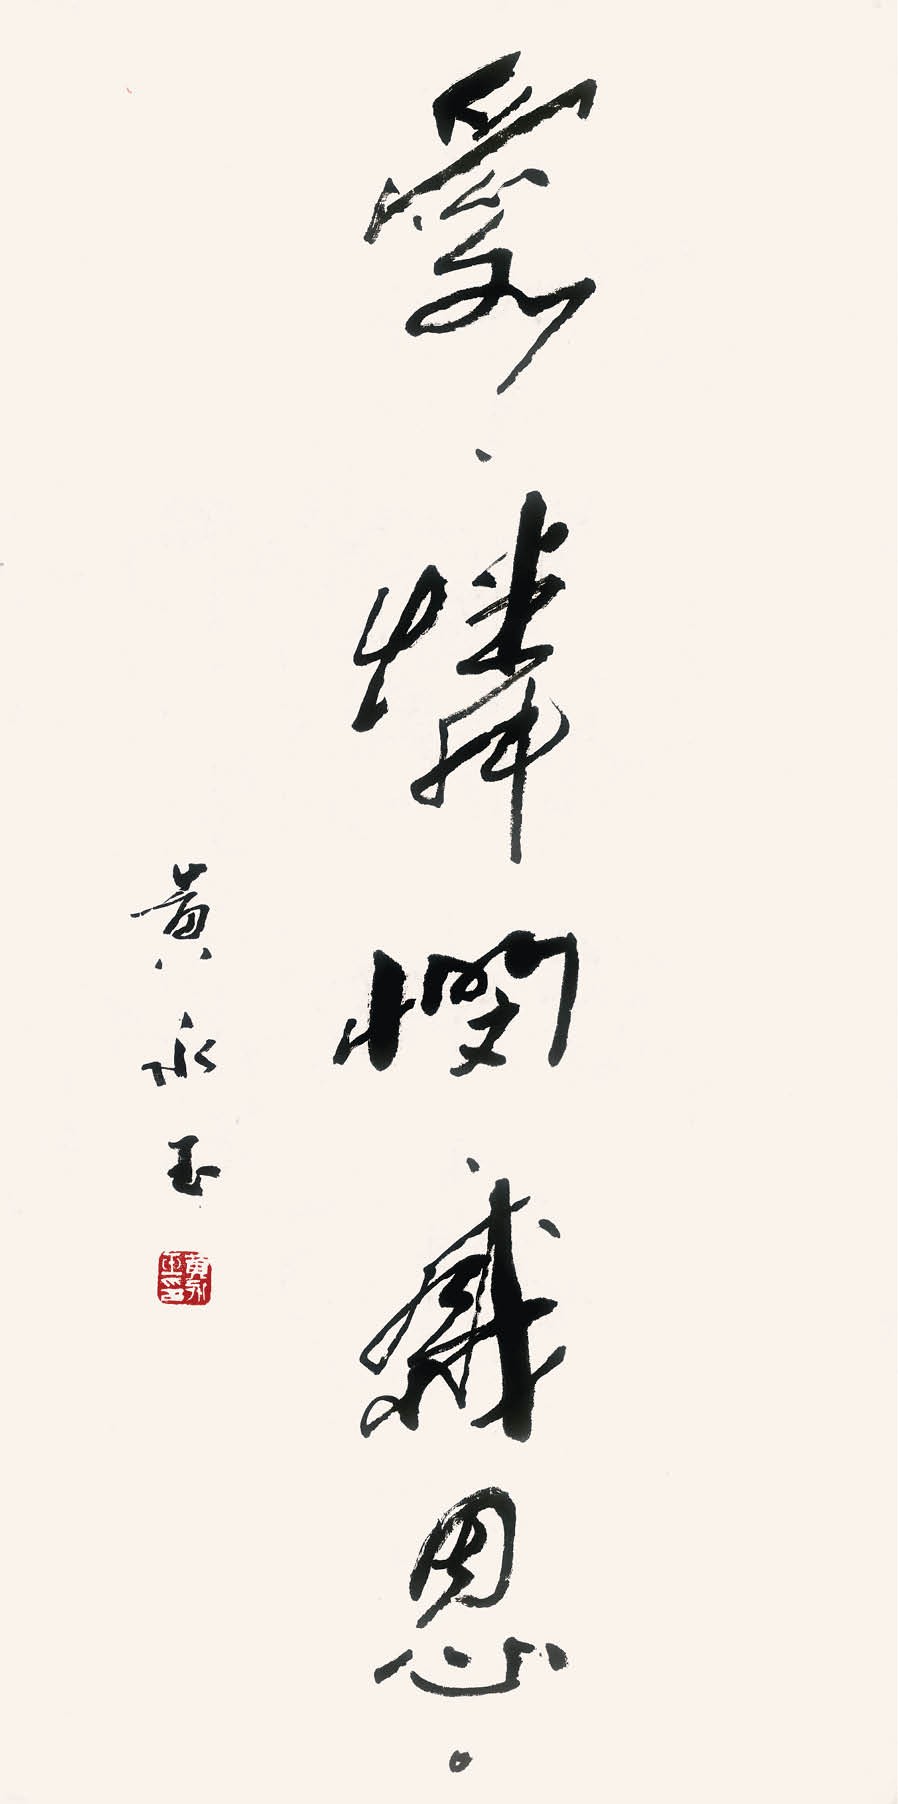 愛、憐憫、感恩。
黄永玉
黄永玉印